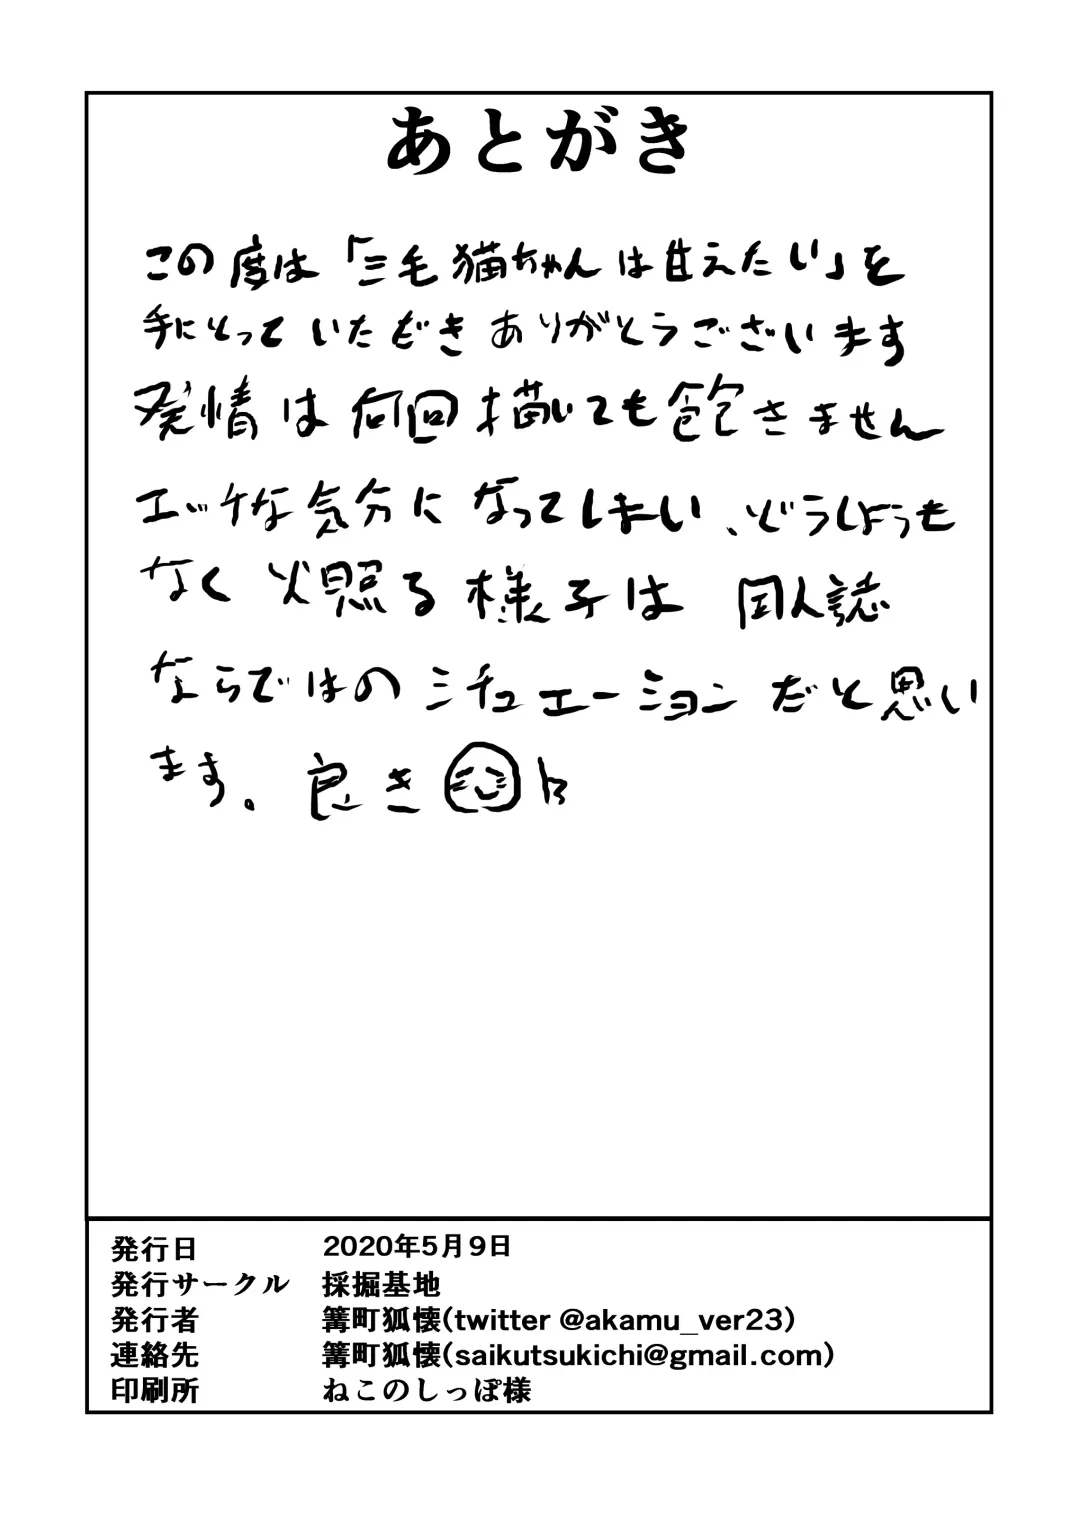 あとがき
この度は「三毛猫ちゃんは甘えたい」を
手にとっていただきありがとうございます
発情は何回描いても飽きません
エッチな気分になってしまい、どうしようも
なく火照る様子は同人誌
ならではのシチュエーションだと思い
ます。良き
発行日 2020年5月9日
発行サークル 採掘基地
発行者 篝町狐懐(twitter @akamu_ver23)
連絡先 篝町狐懐(saikutsukichi@gmail.com)
印刷所 ねこのしっぽ様